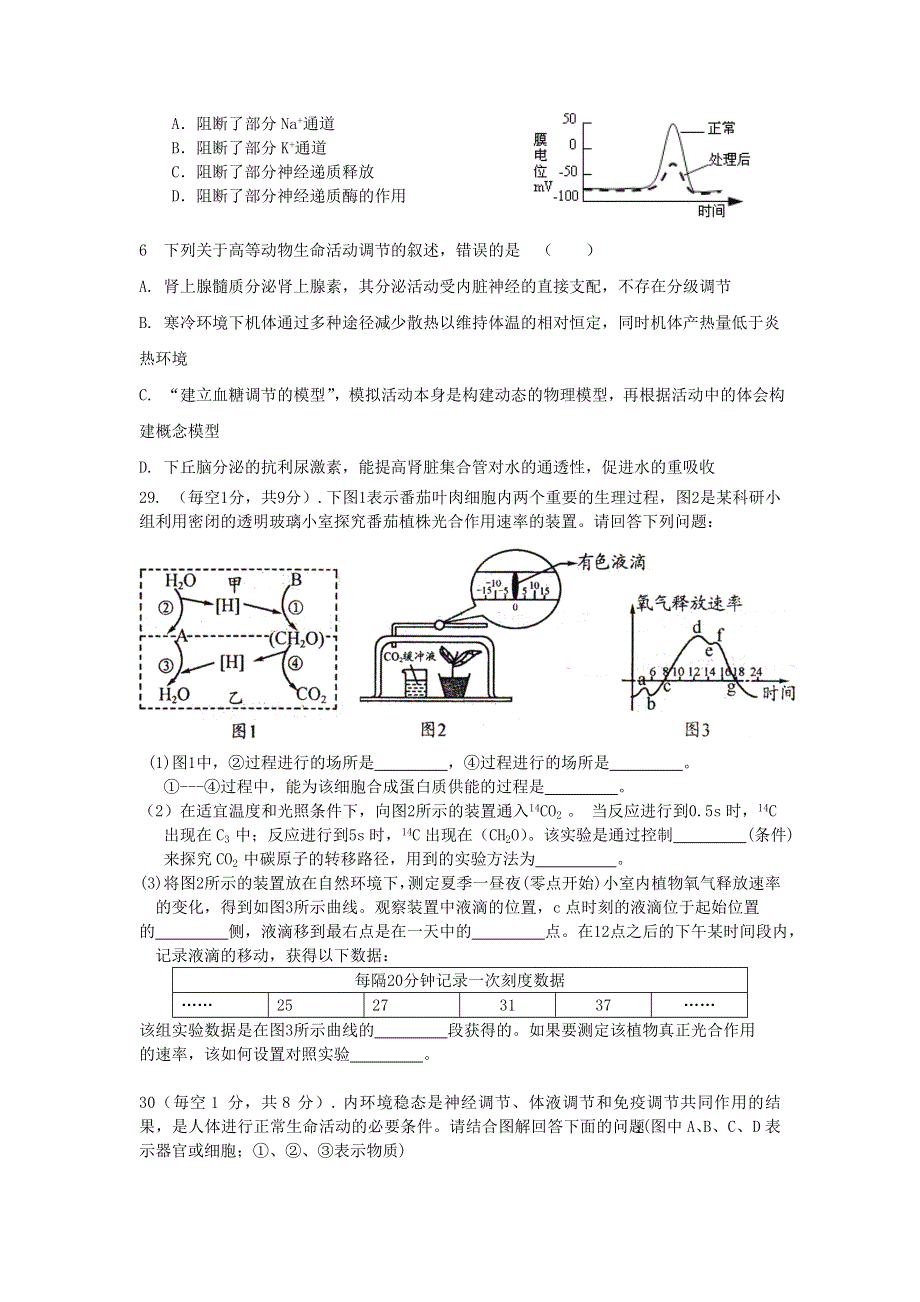 A. 阻断了部分Na⁺通道
B. 阻断了部分K⁺通道
C. 阻断了部分神经递质释放
D. 阻断了部分神经递质酶的作用
膜电位mV
50
0
-50
-100
正常
处理后
时间
6 下列关于高等动物生命活动调节的叙述，错误的是 （ ）
A. 肾上腺髓质分泌肾上腺素，其分泌活动受内脏神经的直接支配，不存在分级调节
B. 寒冷环境下机体通过多种途径减少散热以维持体温的相对恒定，同时机体产热量低于炎
热环境
C. “建立血糖调节的模型”，模拟活动本身是构建动态的物理模型，再根据活动中的体会构
建概念模型
D. 下丘脑分泌的抗利尿激素，能提高肾脏集合管对水的通透性，促进水的重吸收
29. （每空1分，共9分）.下图1表示番茄叶肉细胞内两个重要的生理过程，图2是某科研小
组利用密闭的透明玻璃小室探究番茄植株光合作用速率的装置。请回答下列问题：
H₂O 甲 B
② [H] ①
A (CH₂O)
③ [H] ④
H₂O 乙 CO₂
图1
有色液滴
-15 -10 -5 0 5 10 15
CO₂缓冲液
图2
氧气释放速率
a b c d e f g
6 8 10 12 14 16 18 24
时间
图3
(1)图1中，②过程进行的场所是________，④过程进行的场所是________。
①---④过程中，能为该细胞合成蛋白质供能的过程是________。
（2）在适宜温度和光照条件下，向图2所示的装置通入¹⁴CO₂ 。 当反应进行到0.5s 时，¹⁴C
出现在 C₃ 中；反应进行到5s 时，¹⁴C 出现在（CH₂O）。该实验是通过控制________(条件)
来探究 CO₂ 中碳原子的转移路径，用到的实验方法为________ 。
(3)将图2所示的装置放在自然环境下，测定夏季一昼夜(零点开始)小室内植物氧气释放速率
的变化，得到如图3所示曲线。观察装置中液滴的位置，c 点时刻的液滴位于起始位置
的________侧，液滴移到最右点是在一天中的________点。在12点之后的下午某时间段内，
记录液滴的移动，获得以下数据：
每隔20分钟记录一次刻度数据
…… 25 27 31 37 ……
该组实验数据是在图3所示曲线的________段获得的。如果要测定该植物真正光合作用
的速率，该如何设置对照实验________。
30（每空 1 分，共 8 分）. 内环境稳态是神经调节、体液调节和免疫调节共同作用的结
果，是人体进行正常生命活动的必要条件。请结合图解回答下面的问题(图中 A、B、C、D 表
示器官或细胞；①、②、③表示物质)